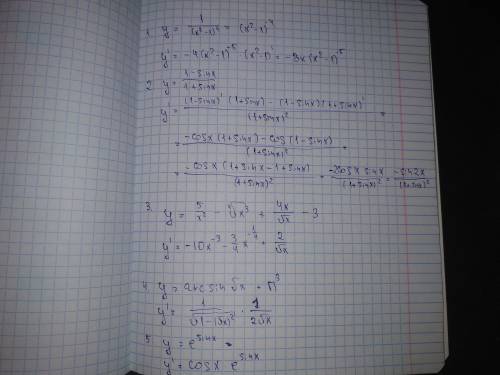 1. y = 1/(x²-1)⁴ = (x²-1)⁻⁴
y' = -4(x²-1)⁻⁵ · (x²-1)' = -8x(x²-1)⁻⁵
2. y = (1-sinx)/(1+sinx)
y' = ((1-sinx)'(1+sinx) - (1-sinx)(1+sinx)')/(1+sinx)² =
= (-cosx(1+sinx) - cos(1-sinx))/(1+sinx)² =
= -cosx(1+sinx-1+sinx)/(1+sinx)² = -2cosx sinx/(1+sinx)² = -sin2x/(1+sinx)²
3. y = 5/x² - ∜x³ + 4x/√x - 3
y' = -10x⁻³ - 3/4 x^(-1/4) + 2/√x
4. y = arcsin√x + π³
y' = 1/√(1-(√x)²) · 1/(2√x)
5. y = e^(sinx)
y' = cosx · e^(sinx)